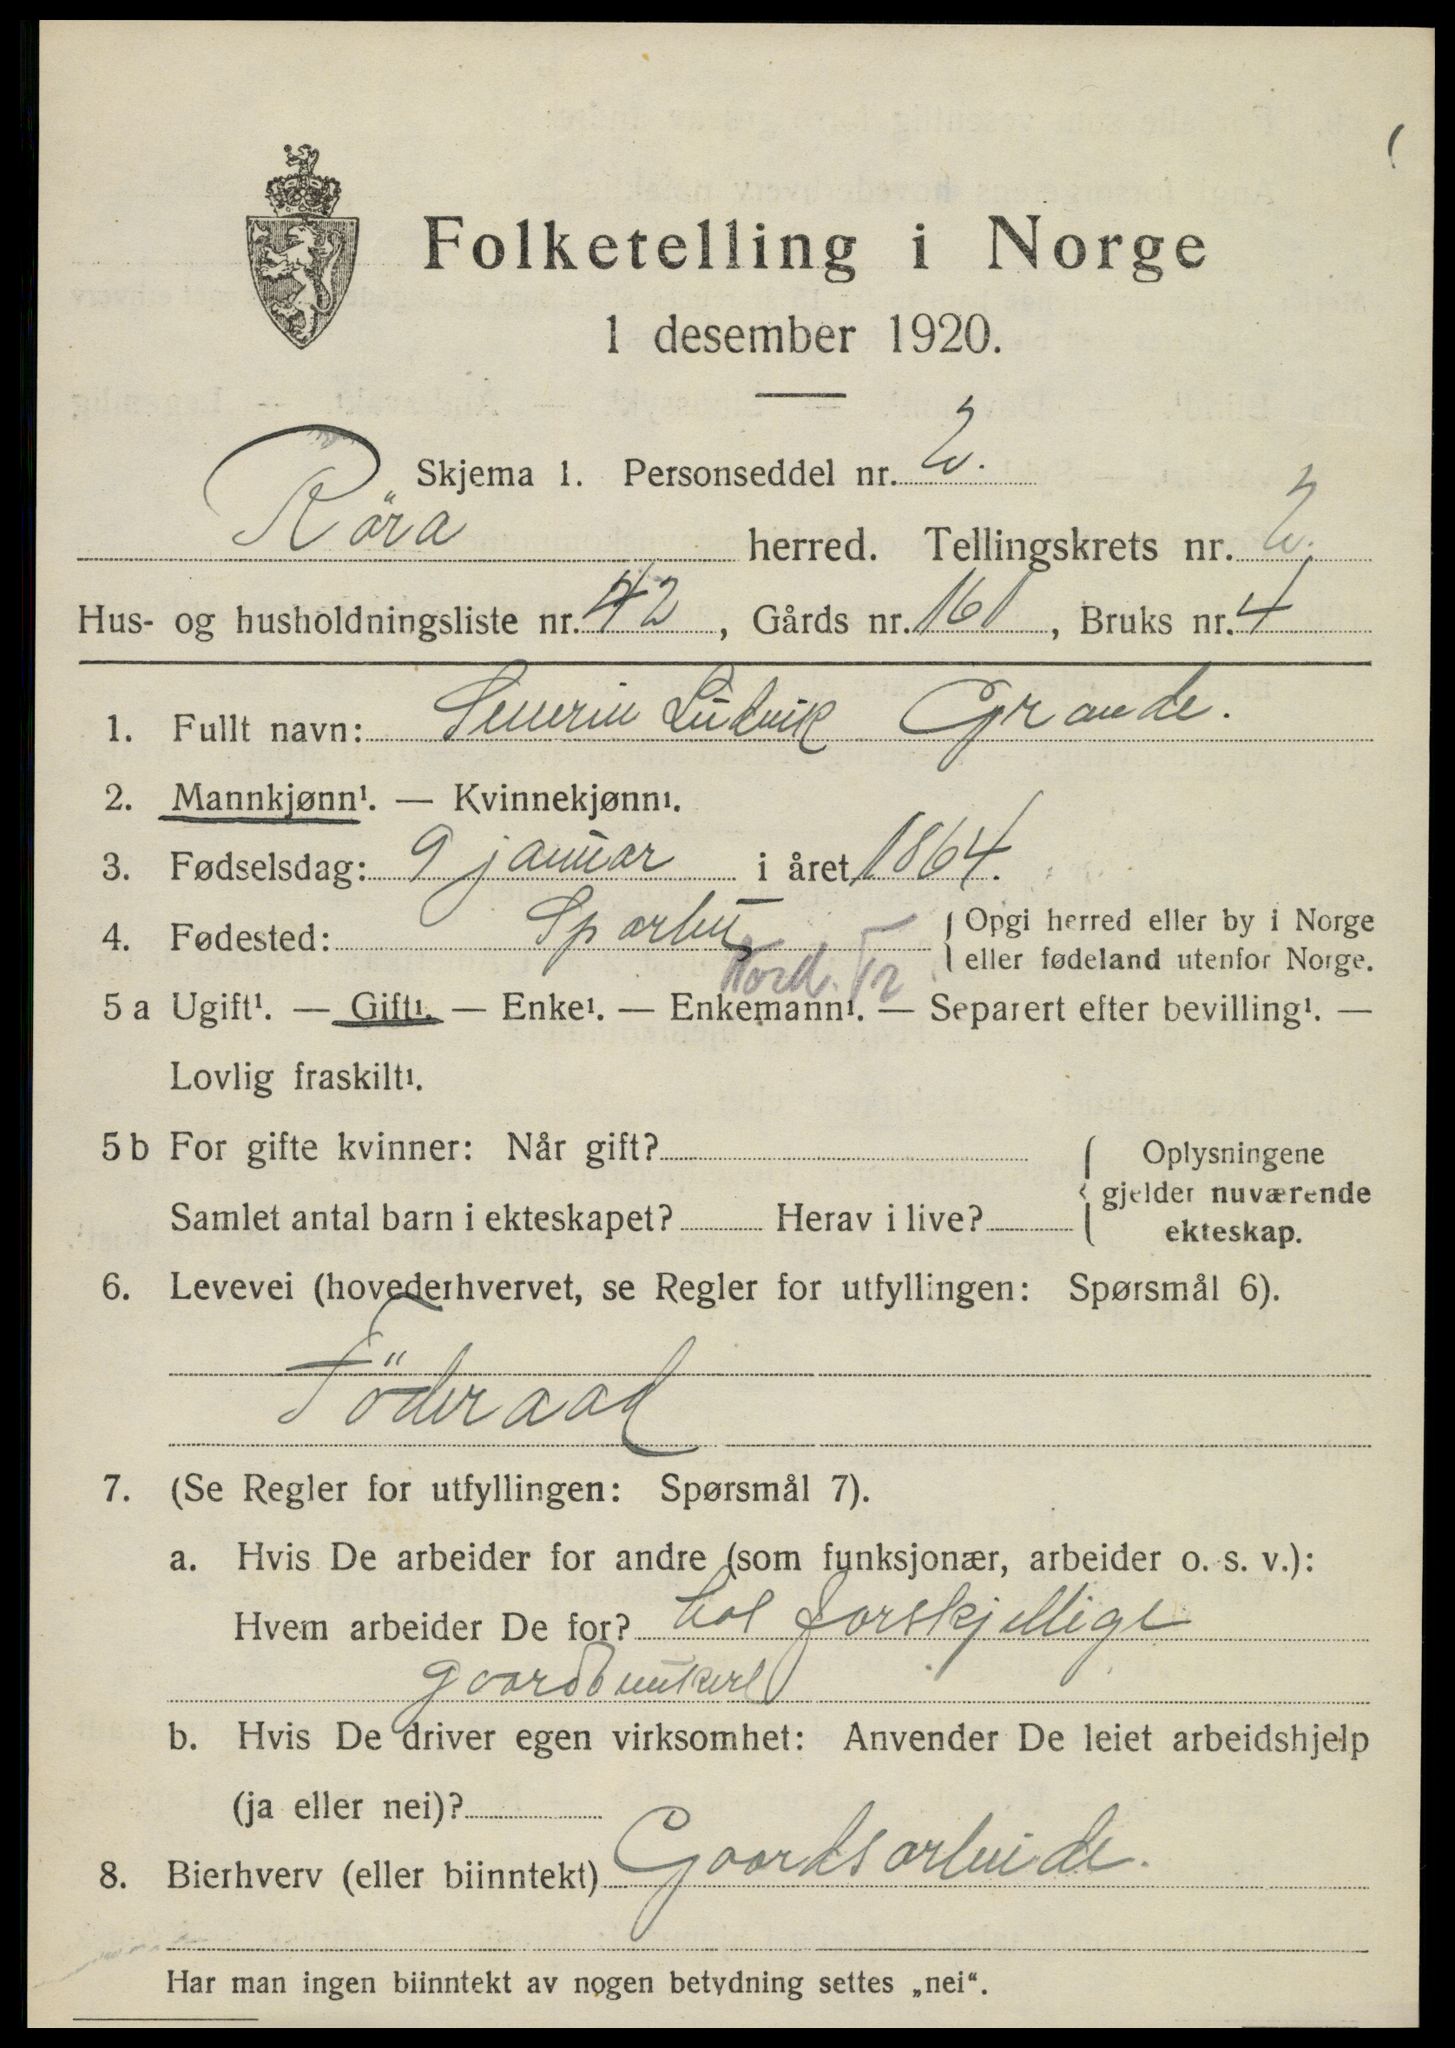 Folketelling i Norge
1 desember 1920.
Skjema 1. Personseddel nr. 2.
Röra herred. Tellingskrets nr. 2.
Hus- og husholdningsliste nr. 42, Gårds nr. 161, Bruks nr. 4
1. Fullt navn: Severin Ludvik Grande.
2. Mannkjønn¹. — Kvinnekjønn¹.
3. Fødselsdag: 9 januar i året 1864.
4. Fødested: Sparbu { Opgi herred eller by i Norge
eller fødeland utenfor Norge.
Nord. Tr
5 a Ugift¹. — Gift¹. — Enke¹. — Enkemann¹. — Separert efter bevilling¹. —
Lovlig fraskilt¹.
5 b For gifte kvinner: Når gift?
Samlet antal barn i ekteskapet? Herav i live?
{ Oplysningene
gjelder nuværende
ekteskap.
6. Levevei (hovederhvervet, se Regler for utfyllingen: Spørsmål 6).
Föderaad
7. (Se Regler for utfyllingen: Spørsmål 7).
a. Hvis De arbeider for andre (som funksjonær, arbeider o. s. v.):
Hvem arbeider De for? hos forskjellige
gaardbrukere
b. Hvis De driver egen virksomhet: Anvender De leiet arbeidshjelp
(ja eller nei)?
8. Bierhverv (eller biinntekt) Gaardsarbeide.
Har man ingen biinntekt av nogen betydning settes „nei“.